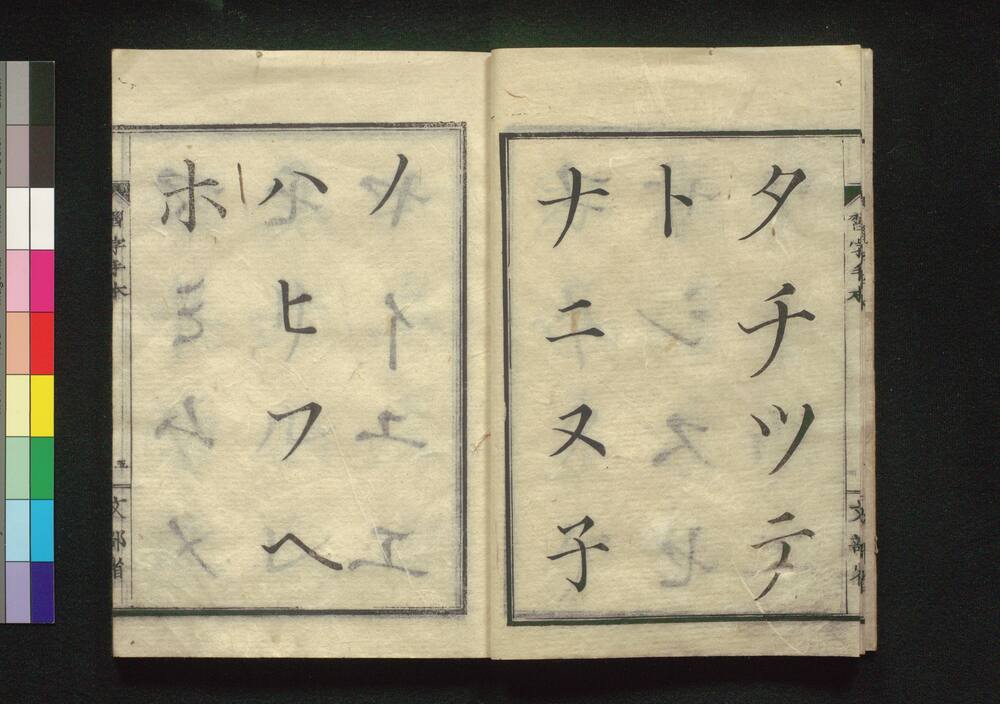 タチツテ
ト
ナニヌ子
ノ
ハヒフヘ
ホ
習字手本
文部省
習字手本
五
文部省